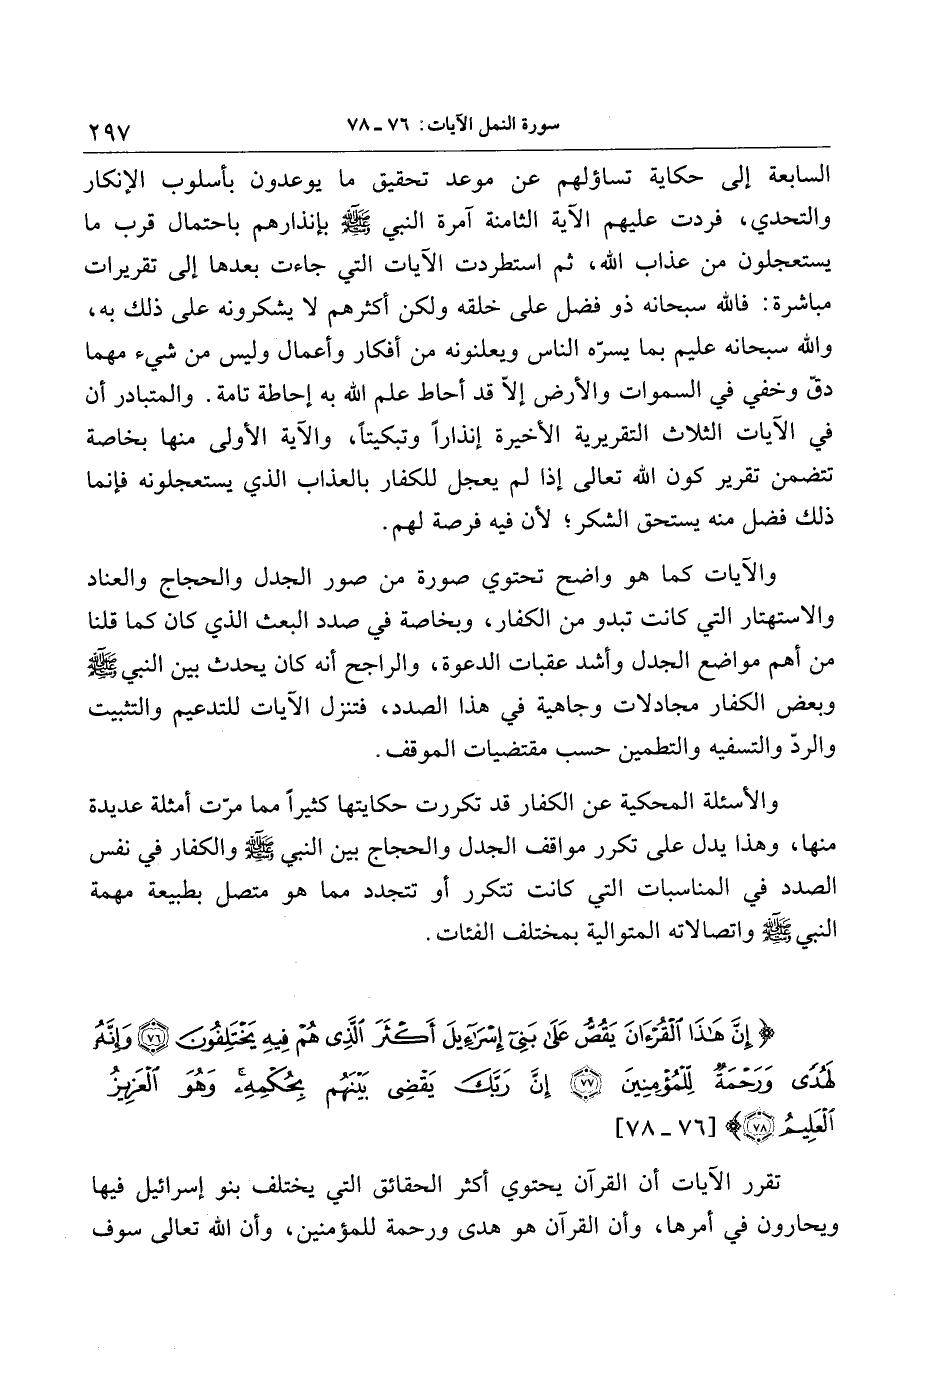 سورة النمل الآيات: ٧٦ ـ ٧٨
٢٩٧
السابعة إلى حكاية تساؤلهم عن موعد تحقيق ما يوعدون بأسلوب الإنكار
والتحدي، فردت عليهم الآية الثامنة آمرة النبي ﷺ بإنذارهم باحتمال قرب ما
يستعجلون من عذاب الله، ثم استطردت الآيات التي جاءت بعدها إلى تقريرات
مباشرة: فالله سبحانه ذو فضل على خلقه ولكن أكثرهم لا يشكرونه على ذلك به،
والله سبحانه عليم بما يسرّه الناس ويعلنونه من أفكار وأعمال وليس من شيء مهما
دقّ وخفي في السموات والأرض إلاّ قد أحاط علم الله به إحاطة تامة. والمتبادر أن
في الآيات الثلاث التقريرية الأخيرة إنذاراً وتبكيتاً، والآية الأولى منها بخاصة
تتضمن تقرير كون الله تعالى إذا لم يعجل للكفار بالعذاب الذي يستعجلونه فإنما
ذلك فضل منه يستحق الشكر؛ لأن فيه فرصة لهم.
والآيات كما هو واضح تحتوي صورة من صور الجدل والحجاج والعناد
والاستهتار التي كانت تبدو من الكفار، وبخاصة في صدد البعث الذي كان كما قلنا
من أهم مواضع الجدل وأشد عقبات الدعوة، والراجح أنه كان يحدث بين النبي ﷺ
وبعض الكفار مجادلات وجاهية في هذا الصدد، فتنزل الآيات للتدعيم والتثبيت
والردّ والتسفيه والتطمين حسب مقتضيات الموقف.
والأسئلة المحكية عن الكفار قد تكررت حكايتها كثيراً مما مرّت أمثلة عديدة
منها، وهذا يدل على تكرر مواقف الجدل والحجاج بين النبي ﷺ والكفار في نفس
الصدد في المناسبات التي كانت تتكرر أو تتجدد مما هو متصل بطبيعة مهمة
النبي ﷺ واتصالاته المتوالية بمختلف الفئات.
﴿ إِنَّ هَٰذَا ٱلۡقُرۡءَانَ يَقُصُّ عَلَىٰ بَنِيٓ إِسۡرَٰٓءِيلَ أَكۡثَرَ ٱلَّذِي هُمۡ فِيهِ يَخۡتَلِفُونَ ٧٦ وَإِنَّهُۥ
لَهُدٗى وَرَحۡمَةٞ لِّلۡمُؤۡمِنِينَ ٧٧ إِنَّ رَبَّكَ يَقۡضِي بَيۡنَهُم بِحُكۡمِهِۦۚ وَهُوَ ٱلۡعَزِيزُ
ٱلۡعَلِيمُ ٧٨﴾ [٧٦ ـ ٧٨]
تقرر الآيات أن القرآن يحتوي أكثر الحقائق التي يختلف بنو إسرائيل فيها
ويحارون في أمرها، وأن القرآن هو هدى ورحمة للمؤمنين، وأن الله تعالى سوف